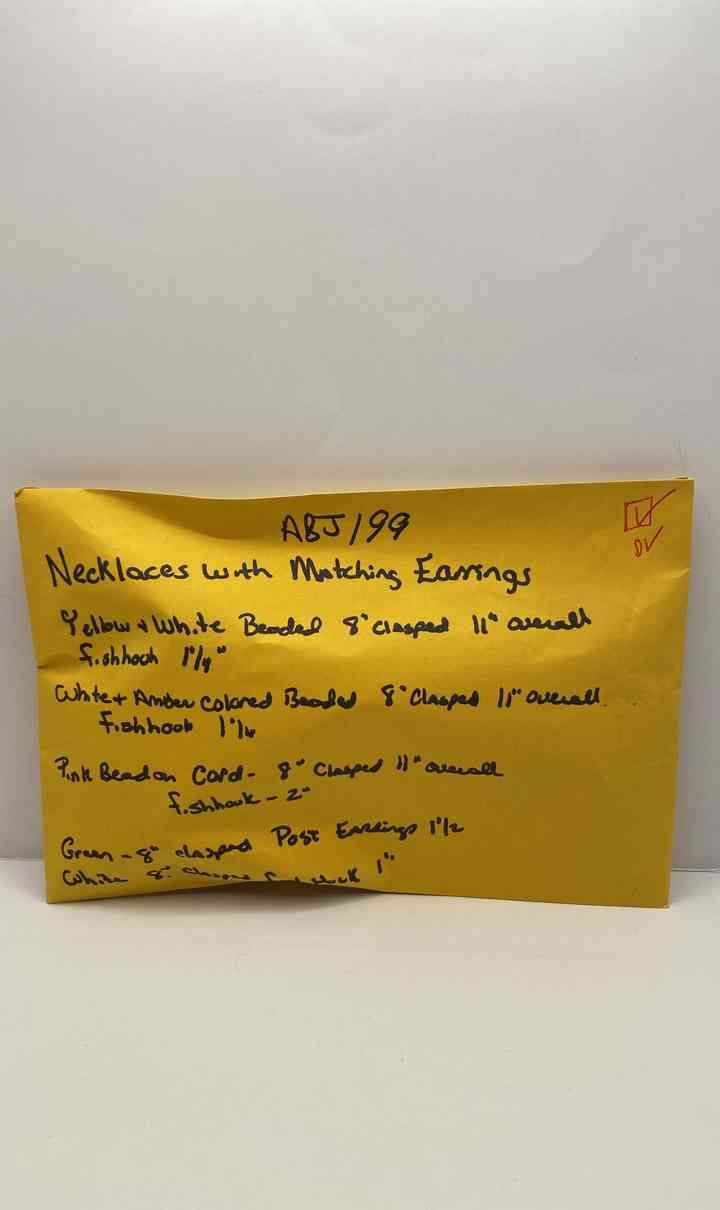 ABJ199
Necklaces with Matching Earrings
Yellow + White Beaded 8" clasped 11" overall
fishhook 1 1/4"
White + Amber Colored Beaded 8" Clasped 11" overall
fishhook 1 1/4
Pink Bead on Cord - 8" Clasped 11" overall
fishhook - 2"
Green - 8" clasped Post Earrings 1 1/2
White 8" Clasped fishhook 1"